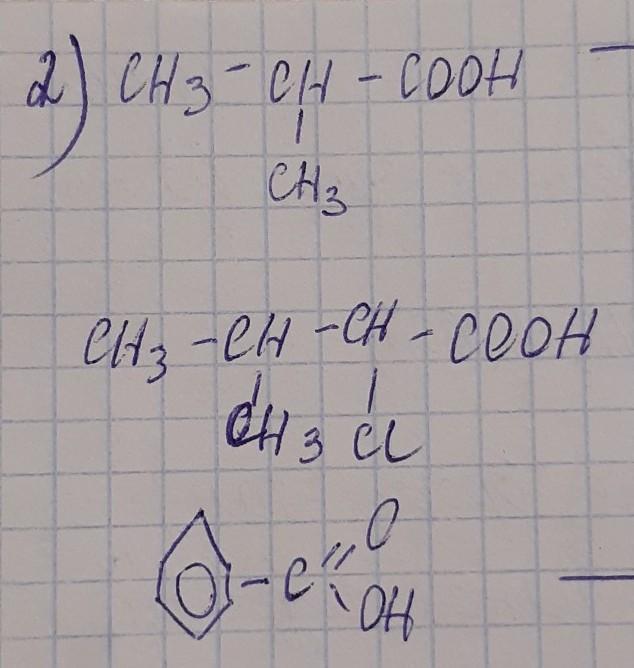 2) CH3 - CH - COOH -
CH3
CH3 - CH - CH - COOH
CH3 Cl
O
- C
OH -